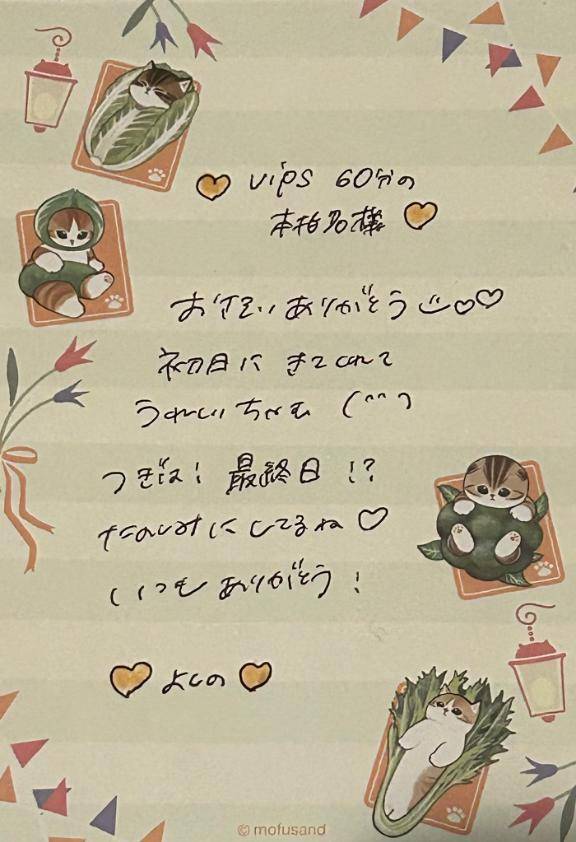 🧡 VIPS 60分の
本指名様 🧡
お手紙 ありがとう ♡♡
初日に きてくれて
うれしいちゃむ (^^)
つぎは! 最終日 !?
たのしみに してるね ♡
いつも ありがとう !
🧡 よしの 🧡
© mofusand